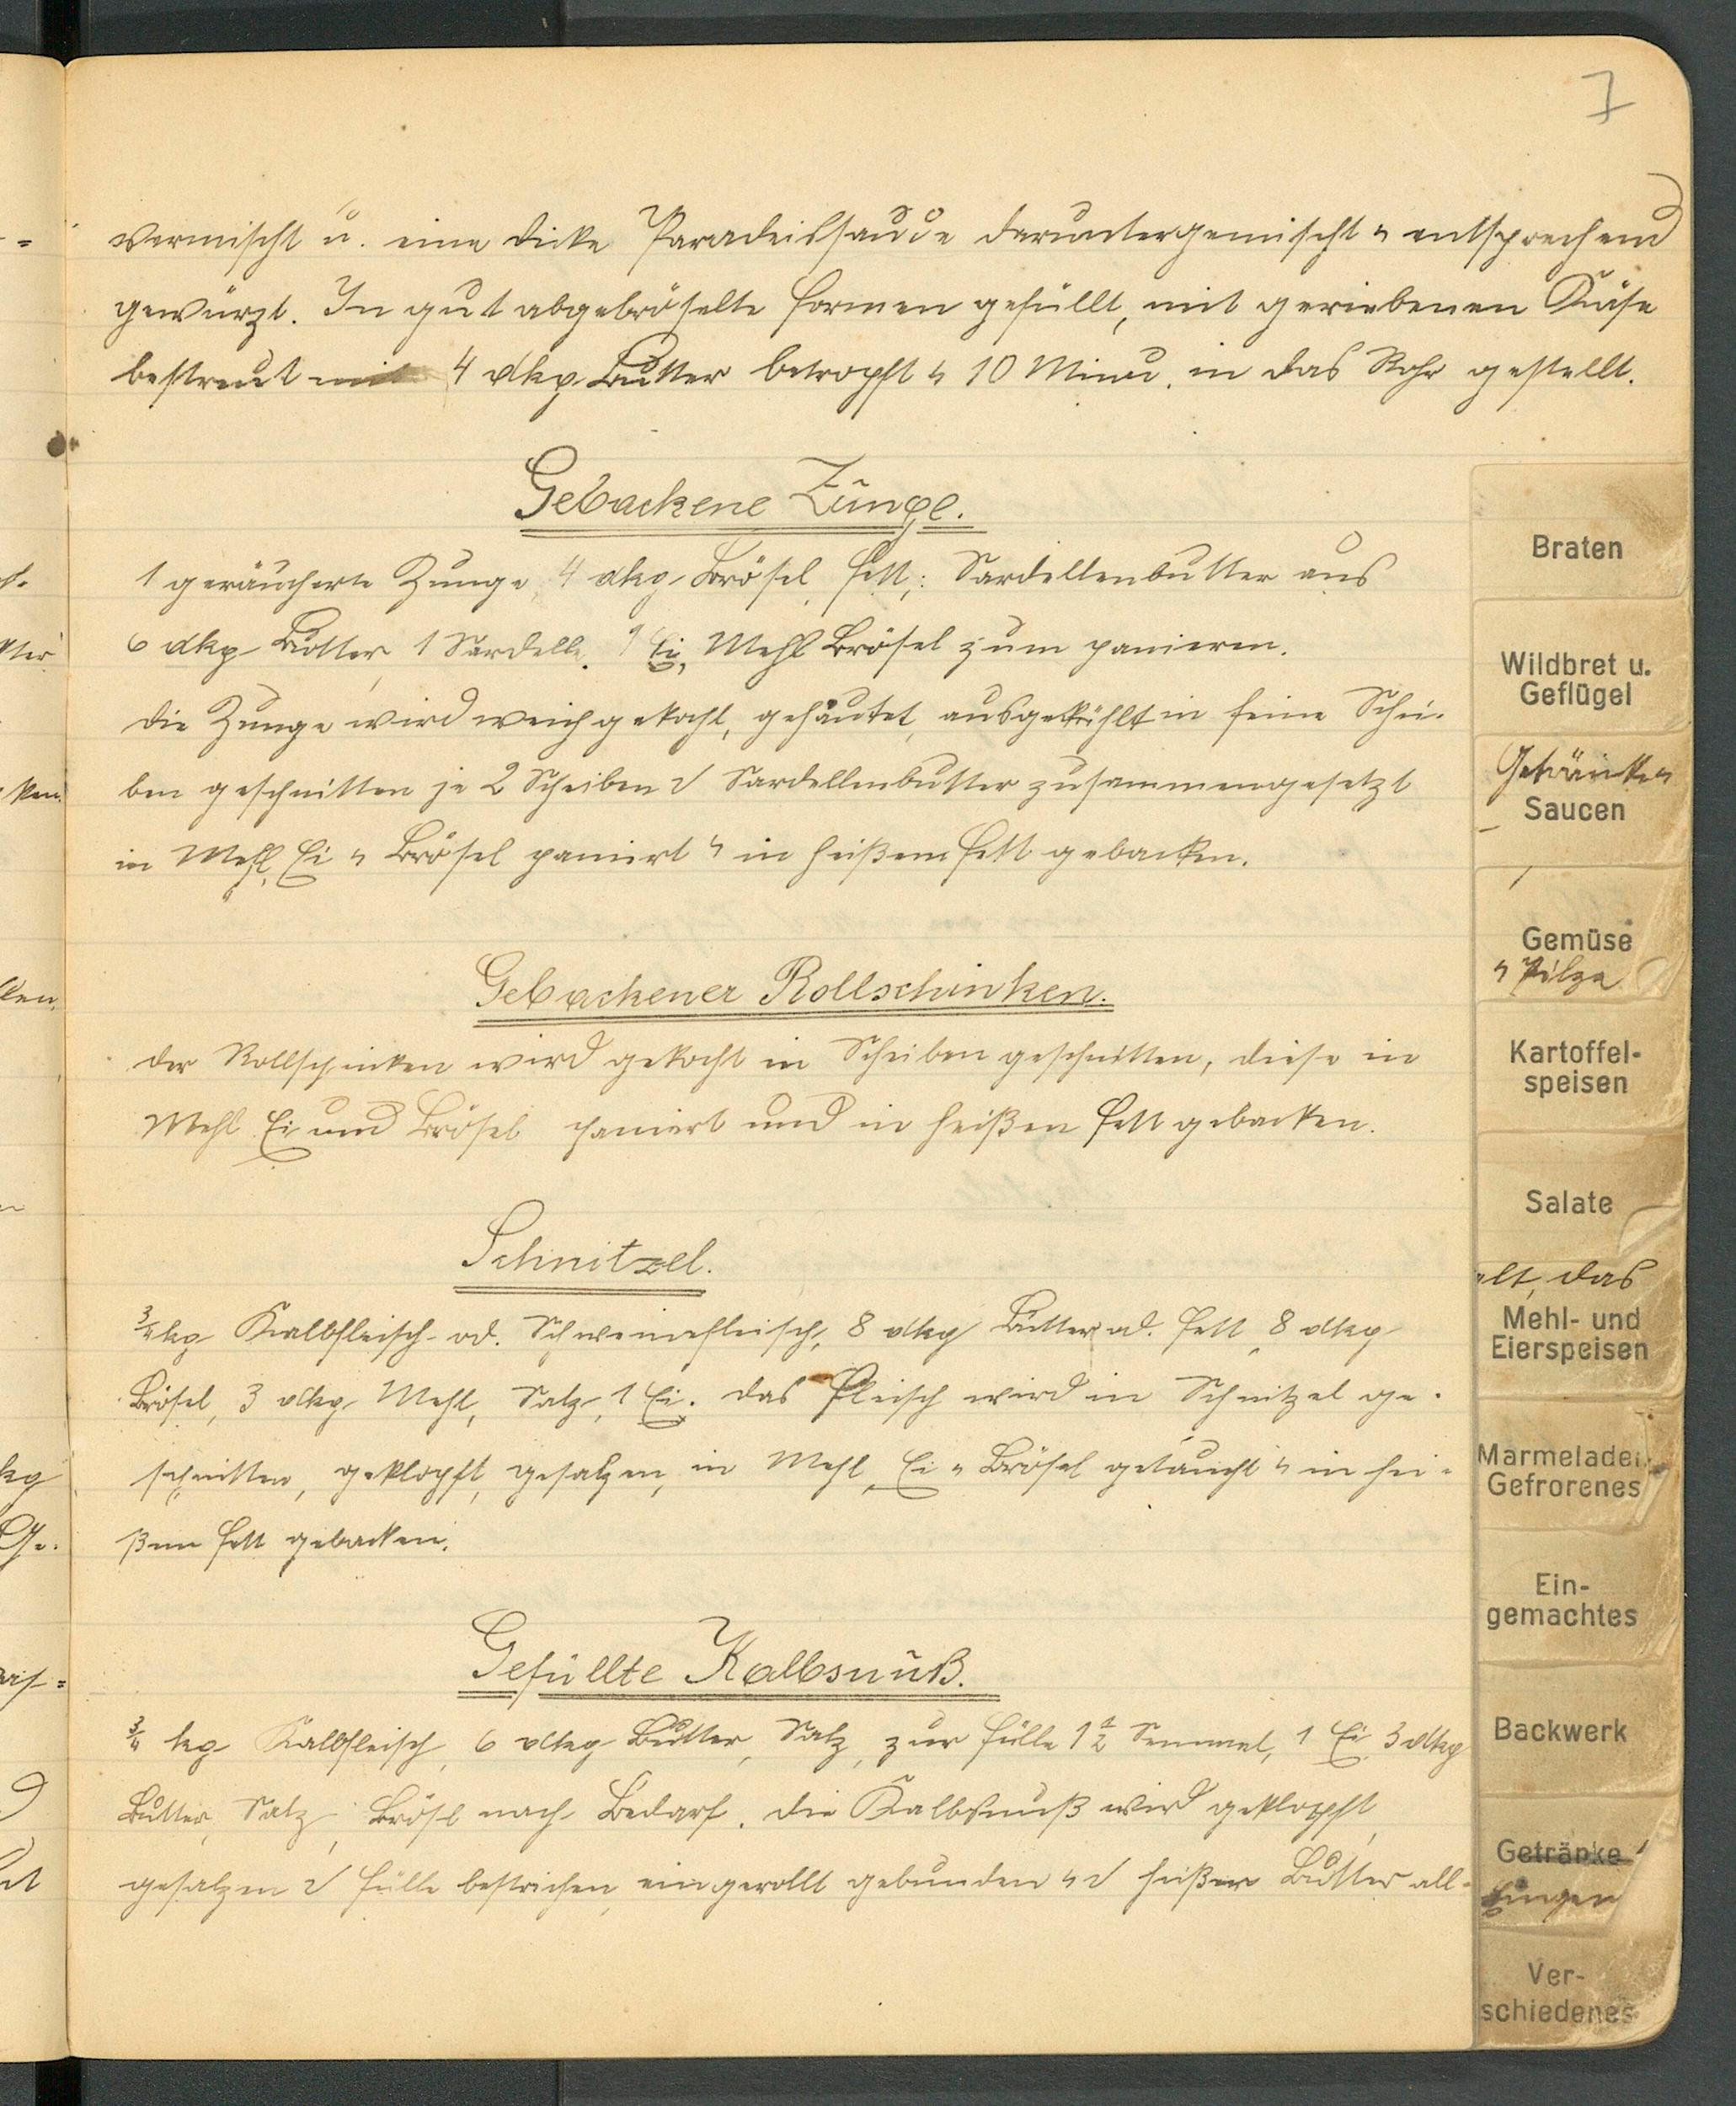 7
vermischt u. eine dicke Paradeissauce daruntergemischt u entsprechend
gewürzt. In gut abgebröselte Formen gefüllt, mit geriebenen Käse
bestreut mit 4 dkg Butter betropft u 10 Minu. in das Rohr gestellt.
Gebackene Zunge.
1 geräucherte Zunge, 4 dkg Brösel, Fett,; Sardellenbutter aus
6 dkg Butter, 1 Sardelle. 1 Ei, Mehl Brösel zum panieren.
Die Zunge wird weich gekocht, gehäutet, ausgekühlt in feine Schei-
ben geschnitten je 2 Scheiben Sardellenbutter zusammengesetzt
in Mehl, Ei u Brösel paniert u in heißem Fett gebacken.
Gebackener Rollschinken.
Der Rollschinken wird gekocht in Scheiben geschnitten, diese in
Mehl Ei und Brösel paniert und in heißen Fett gebacken.
Schnitzel.
3/4 kg Kalbfleisch od. Schweinefleisch, 8 dkg Butter od. Fett, 8 dkg
Brösel, 3 dkg Mehl, Salz, 1 Ei. Das Fleisch wird in Schnitzel ge-
schnitten, geklopft, gesalzen, in Mehl, Ei u Brösel getaucht u in hei-
ßem Fett gebacken.
Gefüllte Kalbsnuß.
3/4 kg Kalbfleisch, 6 dkg Butter, Salz, zur Fülle 1 1/2 Semmel, 1 Ei, 3 dkg
Butter, Salz, Brösl nach Bedarf. Die Kalbsnuß wird geklopft,
gesalzen Fülle bestrichen, eingerollt gebunden u heißer Butter all-
Braten
Wildbret u.
Geflügel
Getränke u
Saucen
Gemüse
u Pilze
Kartoffel-
speisen
Salate
alt, das
Mehl- und
Eierspeisen
Marmeladen
Gefrorenes
Ein-
gemachtes
Backwerk
Getränke
Ver-
schiedenes